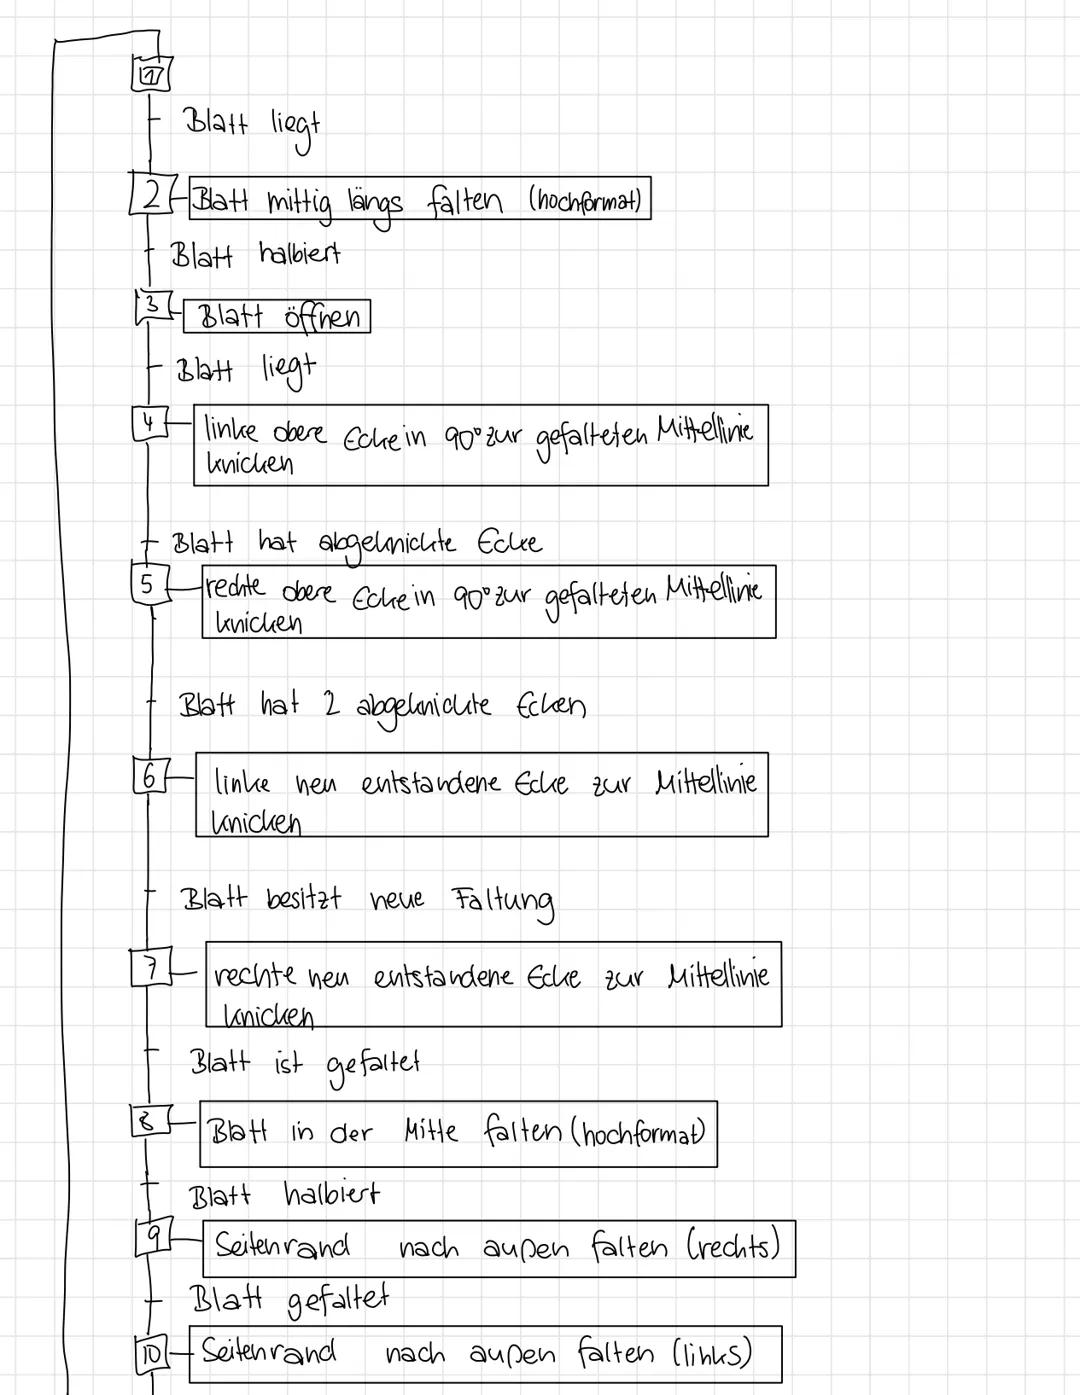 1
Blatt liegt
2 Blatt mittig längs falten (hochformat)
Blatt halbiert
3 Blatt öffnen
Blatt liegt
4 linke obere Ecke in 90° zur gefalteten Mittellinie
knicken
Blatt hat abgeknickte Ecke
5 rechte obere Ecke in 90° zur gefalteten Mittellinie
knicken
Blatt hat 2 abgeknickte Ecken
6 linke neu entstandene Ecke zur Mittellinie
knicken
Blatt besitzt neue Faltung
7 rechte neu entstandene Ecke zur Mittellinie
knicken
Blatt ist gefaltet
8 Blatt in der Mitte falten (hochformat)
Blatt halbiert
9 Seitenrand nach außen falten (rechts)
Blatt gefaltet
10 Seitenrand nach außen falten (links)